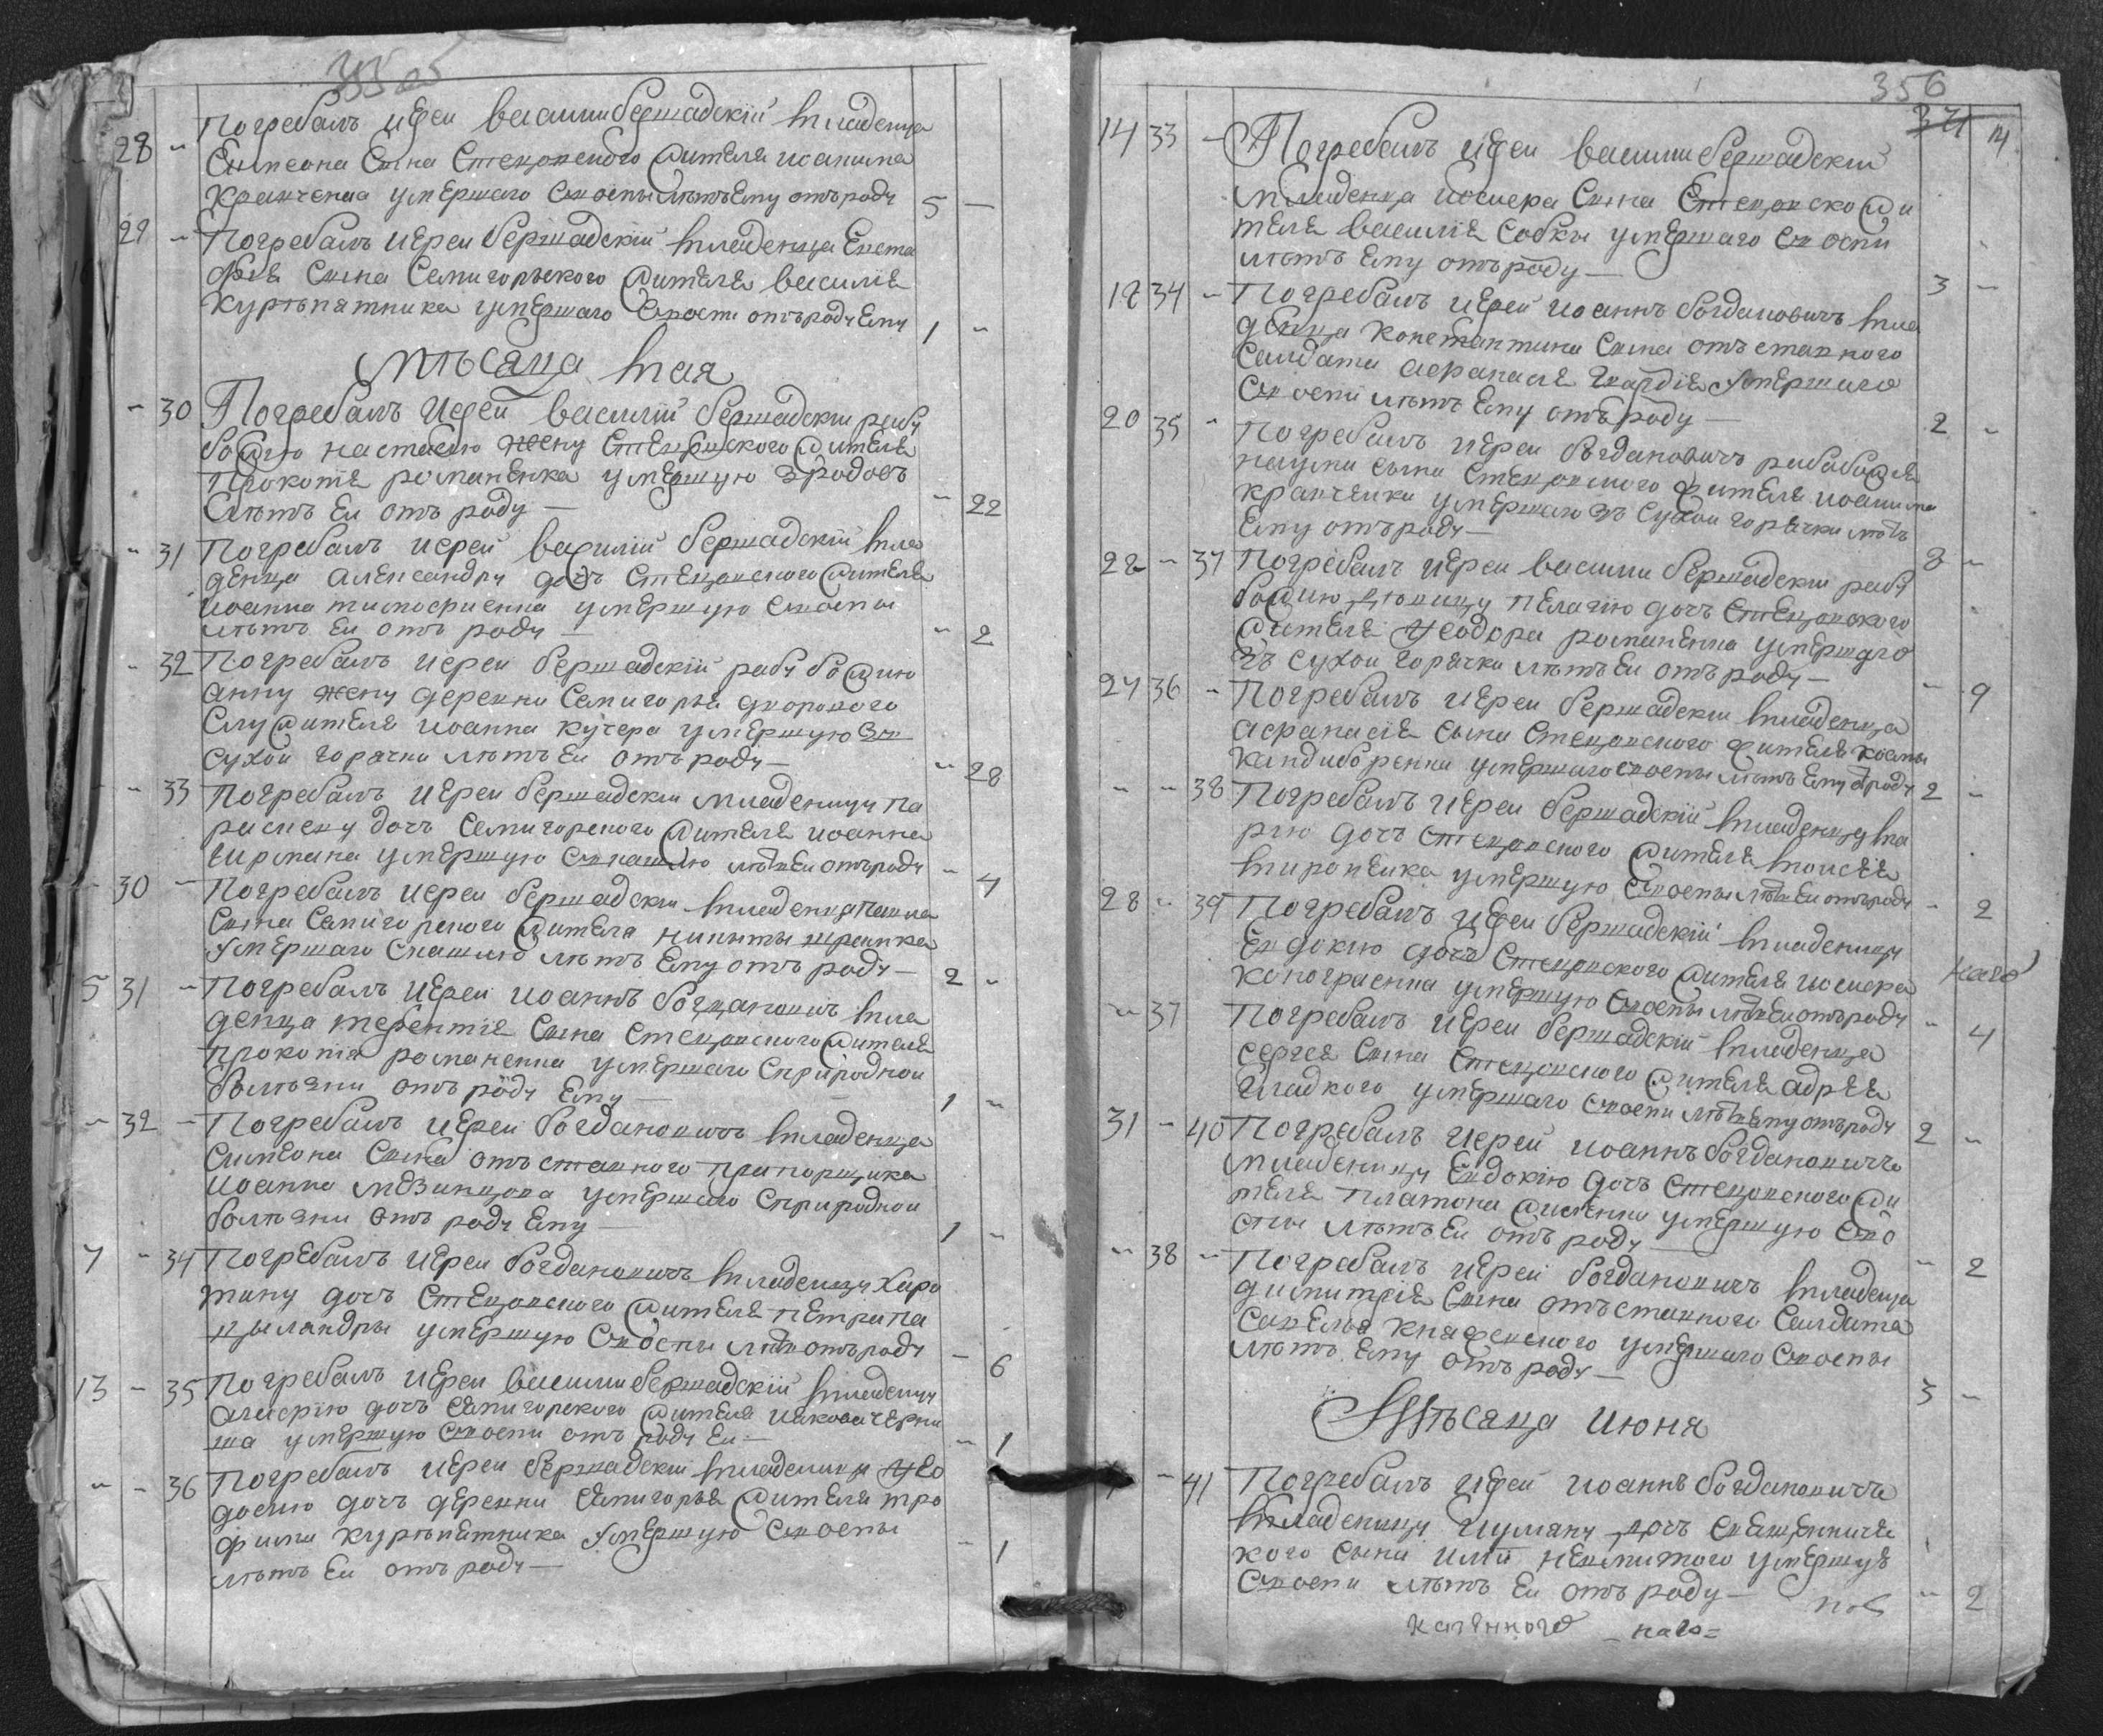 355
28 - Погребалъ иерей василии бершадскїй младенца
Симеона Сына Стецовского жителя иоанина
Кравченка умершаго Своспы лѣтъ Ему отъ роду 5 -
29 - Погребалъ иереи бершадскїй младенца Евста
фїя Сына Семигорского жителя василїя
Куропатника умершаго Своспи отъ роду Ему 1 -
Мѣсяца мая
- 30 Погребалъ иерей василїй бершадскїи рабу
божїю настасїю жену Стецовского жителя
Прокопїя романенка умершую зродовъ
лѣтъ Еи отъ роду - - 22
- 31 Погребалъ иерей василїй бершадскїй мла
денца александру дочъ Стецовского жителя
иоанна тимофиенка умершую Своспы
лѣтъ Еи отъ роду - - 2
- 32 Погребалъ иереи бершадскїй рабу божию
анну жену деревни Семигоря дворового
Служителя иоанна кучера умершую Зъ
сухои горячки лѣтъ Еи отъ роду - - 28
- 33 Погребалъ иереи бершадскїи младеницу па
раскеву дочъ Семигорского жителя иоанна
умершую Скашлю лѣтъ Еи отъ роду - 4
30 - Погребалъ иереи бершадскїи младенца павла
Сына Семигорского жителя никиты
Умершаго Скашлю лѣтъ Ему отъ роду - 2 -
5 31 - Погребалъ иереи иоаннъ богдановичъ мла
денца терентїя Сына Стецовского жителя
Прокопїя романенка умершаго Сприроднои
болѣзни отъ роду Ему - 1 -
- 32 - Погребалъ иереи богдановичъ младенца
Симеона Сына отъставного прапорщика
иоанна умершаго Сприроднои
болѣзни отъ роду Ему - 1 -
7 - 34 Погребалъ иереи богдановичъ младеницу Хари
тину дочъ Стецовского жителя петра па
умершую Своспы лѣтъ отъ роду - 6
13 - 35 Погребалъ иереи василии бершадскїй младеницу
дочъ Семигорского жителя иакова черны
ша умершую Своспи отъ роду Еи - - 1
- - 36 Погребалъ иереи бершадскїи младеницу Ѳео
досїю дочъ деревни Семигоря жителя тро
фима куропатника Умершую Своспы
лѣтъ Еи отъ роду - - 1
356
371 14
14 33 - Погребалъ иереи василии бершадскїи
младенца иосифа Сына Стецовско жи
теля василїя Собки умершаго Своспи
лѣтъ Ему отъ роду - 3 -
18 34 - Погребалъ иерей иоаннъ богдановичъ мла
денца константина Сына отъставного
Салдата афанасїя Умершаго
Своспи лѣтъ Ему отъ роду - 2 -
20 35 - Погребалъ иереи богдановичъ раба божїя
наума сына Стецовского жителя иоанина
кравченка умершаго зъ Сухои горячки лѣтъ
Ему отъ роду - 8 -
22 - 37 Погребалъ иереи василии бершадскїи рабу
божию дѣвицу пелагїю дочъ Стецовского
жителя Ѳеодора романенка умершаго
зъ сухои горячки лѣтъ Еи отъ роду - - 9
24 36 - Погребалъ иереи бершадскїи младенца
афанасїя сына Стецовского жителя космы
кандиборенка умершаго своспы лѣтъ Ему отроду 2 -
- - 38 Погребалъ иереи бершадскїй младеницу ма
рїю дочъ Стецовского жителя моисея
миропенка умершую Своспы лѣтъ Еи отъ роду - 2
28 - 39 Погребалъ иереи бершадскїй младеницу
Евдокию дочъ Стецовского жителя иосифа
умершую Своспы лѣтъ Еи отъ роду - 4
каго
- 37 Погребалъ иереи бершадскїй младенца
сергея Сына Стецовского жителя адрея
гладкого умершаго Своспи лѣтъ Ему отъ роду 2 -
31 - 40 Погребалъ иерей иоаннъ богдановичъ
младеницу Евдокїю дочъ Стецовского жи
теля платона умершую Сво
спы лѣтъ Еи отъ роду - - 2
- 38 - Погребалъ иереи богдановичъ младенца
димитрїя Сына отъставного Салдата
Савелья умершаго Своспы
лѣтъ Ему отъ роду - 3 -
Мѣсяца июня
- 41 Погребалъ иереи иоаннъ богдановичъ
младеницу дочъ Священниче
кого сына умершую
Своспи лѣтъ Еи отъ роду - - 2
-каго=